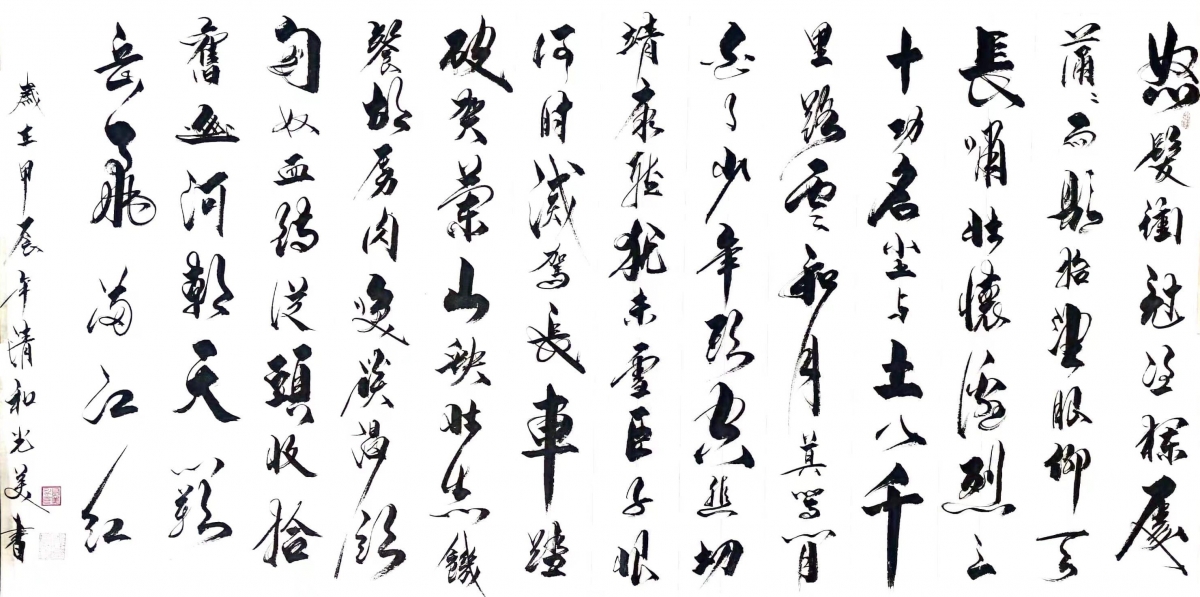 怒髮衝冠憑欄處
蕭〻雨歇抬望眼仰天
長嘯壯懷激烈三
十功名尘与土八千
里路雲和月莫等閒
白了少年頭空悲切
靖康耻猶未雪臣子恨
何时滅駕長車踏
破賀蘭山缺壯志饑
餐胡虜肉笑談渴飲
匈奴血待從頭收拾
舊山河朝天闕
岳飛滿江紅
歲在甲辰年清和光美書